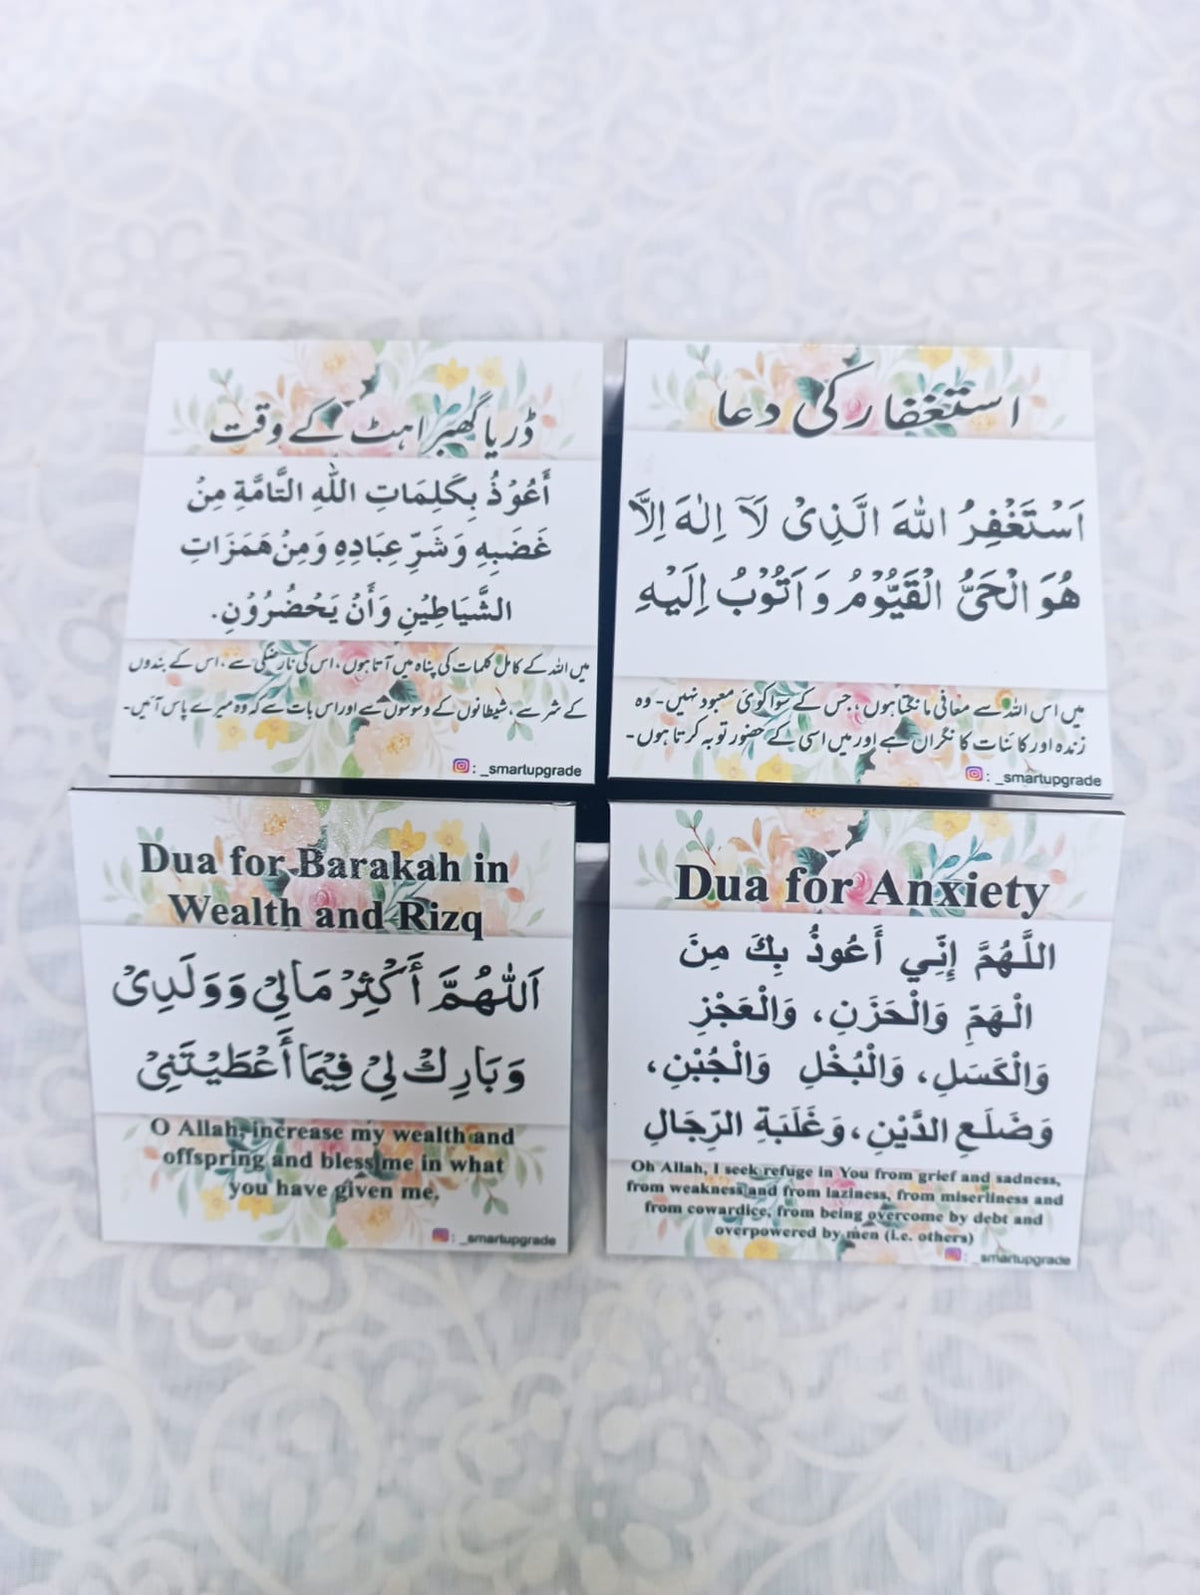 ڈر یا گھبراہٹ کے وقت
أَعُوْذُ بِكَلِمَاتِ اللّٰهِ التَّامَّةِ مِنْ
غَضَبِهِ وَشَرِّ عِبَادِهِ وَمِنْ هَمَزَاتِ
الشَّيَاطِيْنِ وَأَنْ يَحْضُرُوْنِ.
میں اللہ کے کامل کلمات کی پناہ میں آتا ہوں، اس کی ناراضگی سے، اس کے بندوں
کے شر سے، شیطانوں کے وسوسوں سے اور اس بات سے کہ وہ میرے پاس آئیں۔
: _smartupgrade
استغفار کی دعا
اَسْتَغْفِرُ اللّٰهَ الَّذِىْ لَآ اِلٰهَ اِلَّا
هُوَ الْحَىُّ الْقَيُّوْمُ وَ اَتُوْبُ اِلَيْهِ
میں اس اللہ سے معافی مانگتا ہوں، جس کے سوا کوئی معبود نہیں۔ وہ
زندہ اور کائنات کا نگران ہے اور میں اسی کے حضور توبہ کرتا ہوں۔
: _smartupgrade
Dua for Barakah in
Wealth and Rizq
اَللّٰهُمَّ أَكْثِرْ مَالِىْ وَوَلَدِىْ
وَبَارِكْ لِىْ فِيْمَا أَعْطَيْتَنِىْ
O Allah, increase my wealth and
offspring and bless me in what
you have given me.
: _smartupgrade
Dua for Anxiety
اللَّهُمَّ إِنِّي أَعُوذُ بِكَ مِنَ
الْهَمِّ وَالْحَزَنِ، وَالْعَجْزِ
وَالْكَسَلِ، وَالْبُخْلِ وَالْجُبْنِ،
وَضَلَعِ الدَّيْنِ، وَغَلَبَةِ الرِّجَالِ
Oh Allah, I seek refuge in You from grief and sadness,
from weakness and from laziness, from miserliness and
from cowardice, from being overcome by debt and
overpowered by men (i.e. others)
: _smartupgrade